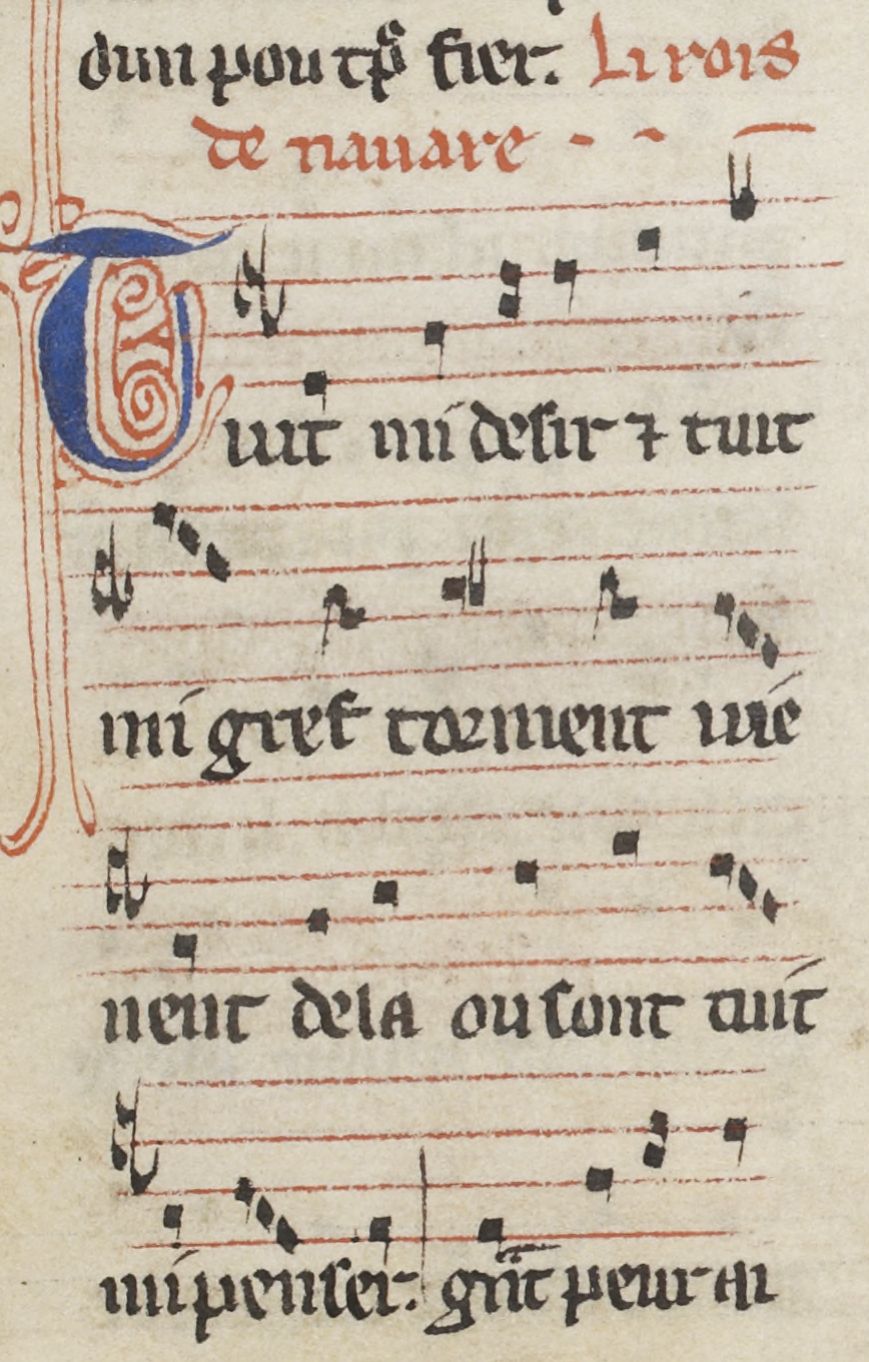 dun pou tp̃s fier. Li rois
de nauare - - -
Tuit mi desir ⁊ tuit
mi gref torment uie
nent dela ou sont tuit
mi penser. gñt peur ai